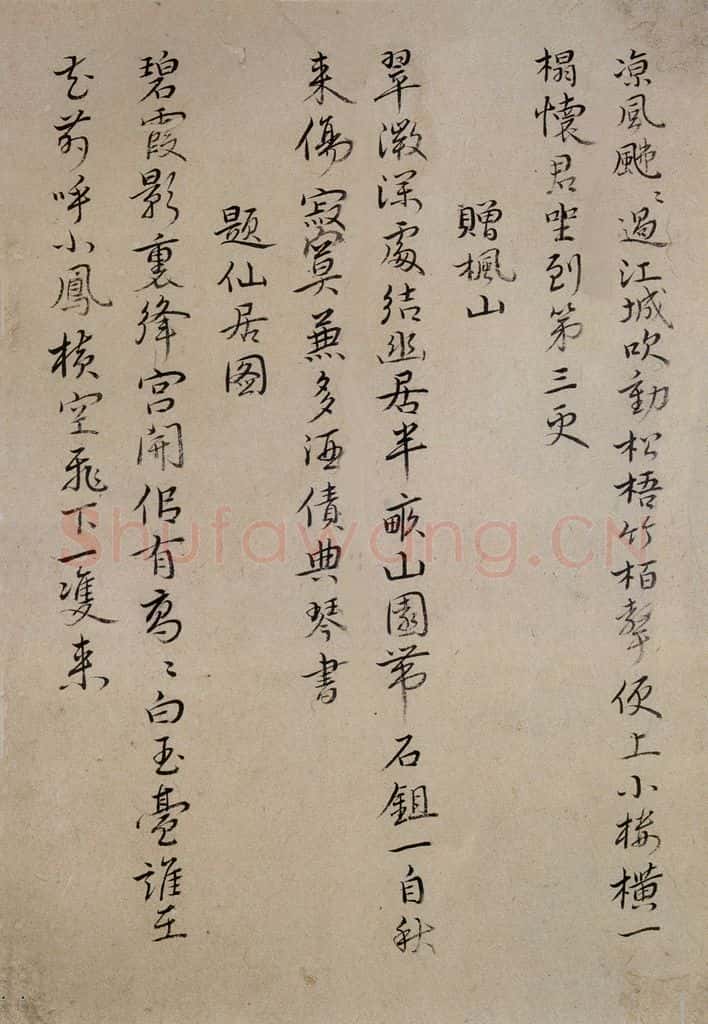 凉風颼〻過江城吹動松梧竹栢聲便上小楼橫一
榻懷君坐到第三更
贈楓山
翠微深處結幽居半畝山園帶石鉏一自秋
来傷寂寞兼多酒債典琴書
題仙居图
碧霞影裏絳宮開侣有高〻白玉臺誰在
花前呼小鳳橫空飛下一隻来
Shufawang.CN